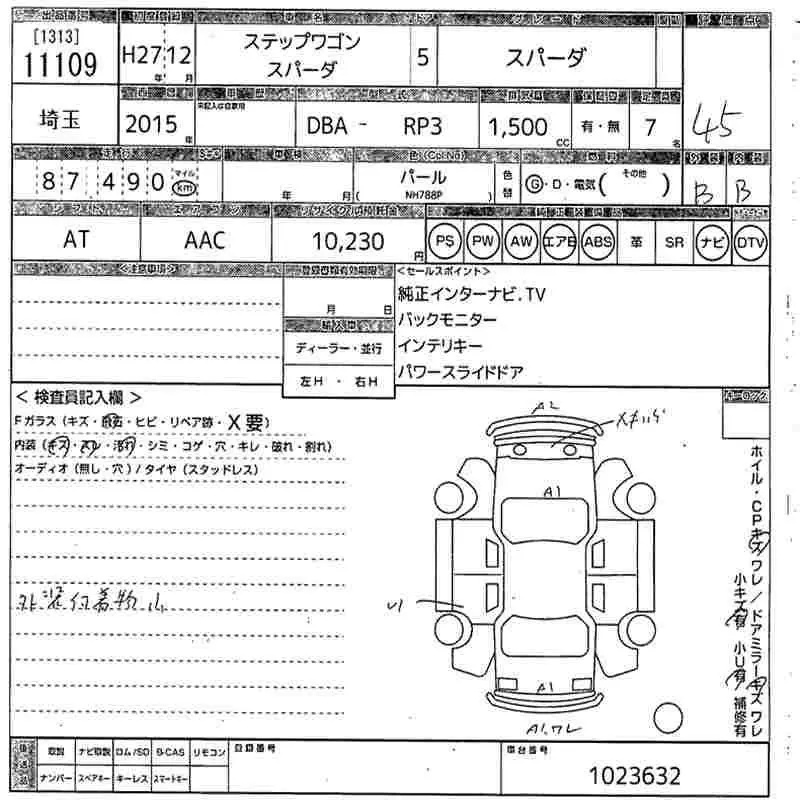 出品番号 初度登録 車名 ドア グレード 評価点
[1313]
11109 H27年12月 ステップワゴン スパーダ 5 スパーダ
45
西暦 車歴 型式 排気量 保証書 定員
未記入は自家用
埼玉 2015年 DBA - RP3 1,500cc 有・無 7名
走行 車検 色(Col No) 燃料 外装 内装
87,490 マイル km 年 月 パール (NH788P) 色替 G・D・電気(その他) B B
シフト エアコン リサイクル預託金 純正装備品
AT AAC 10,230円 PS PW AW エアB ABS 革 SR ナビ DTV
<注意事項> 登録書類有効期限 <セールスポイント>
月 日
純正インターナビ.TV
輸入車 バックモニター
ディーラー・並行 インテリキー
左H・右H パワースライドドア
<検査員記入欄> キーロック
Fガラス(キズ・飛石・ヒビ・リペア跡・X要)
内装(キズ・スレ・汚れ・シミ・コゲ・穴・キレ・破れ・割れ)
オーディオ(無し・穴)/タイヤ(スタッドレス)
外装付着物山
A2
A1
U1
A1
A1,ワレ
ホイル・CPキズワレ/ドアミラーキズワレ
小キズ有 小U有 補修有
後送品 取説 ナビ取説 ロム/SD B-CAS リモコン 登録番号 車台番号
ナンバー スペアキー キーレス スマートキー 1023632